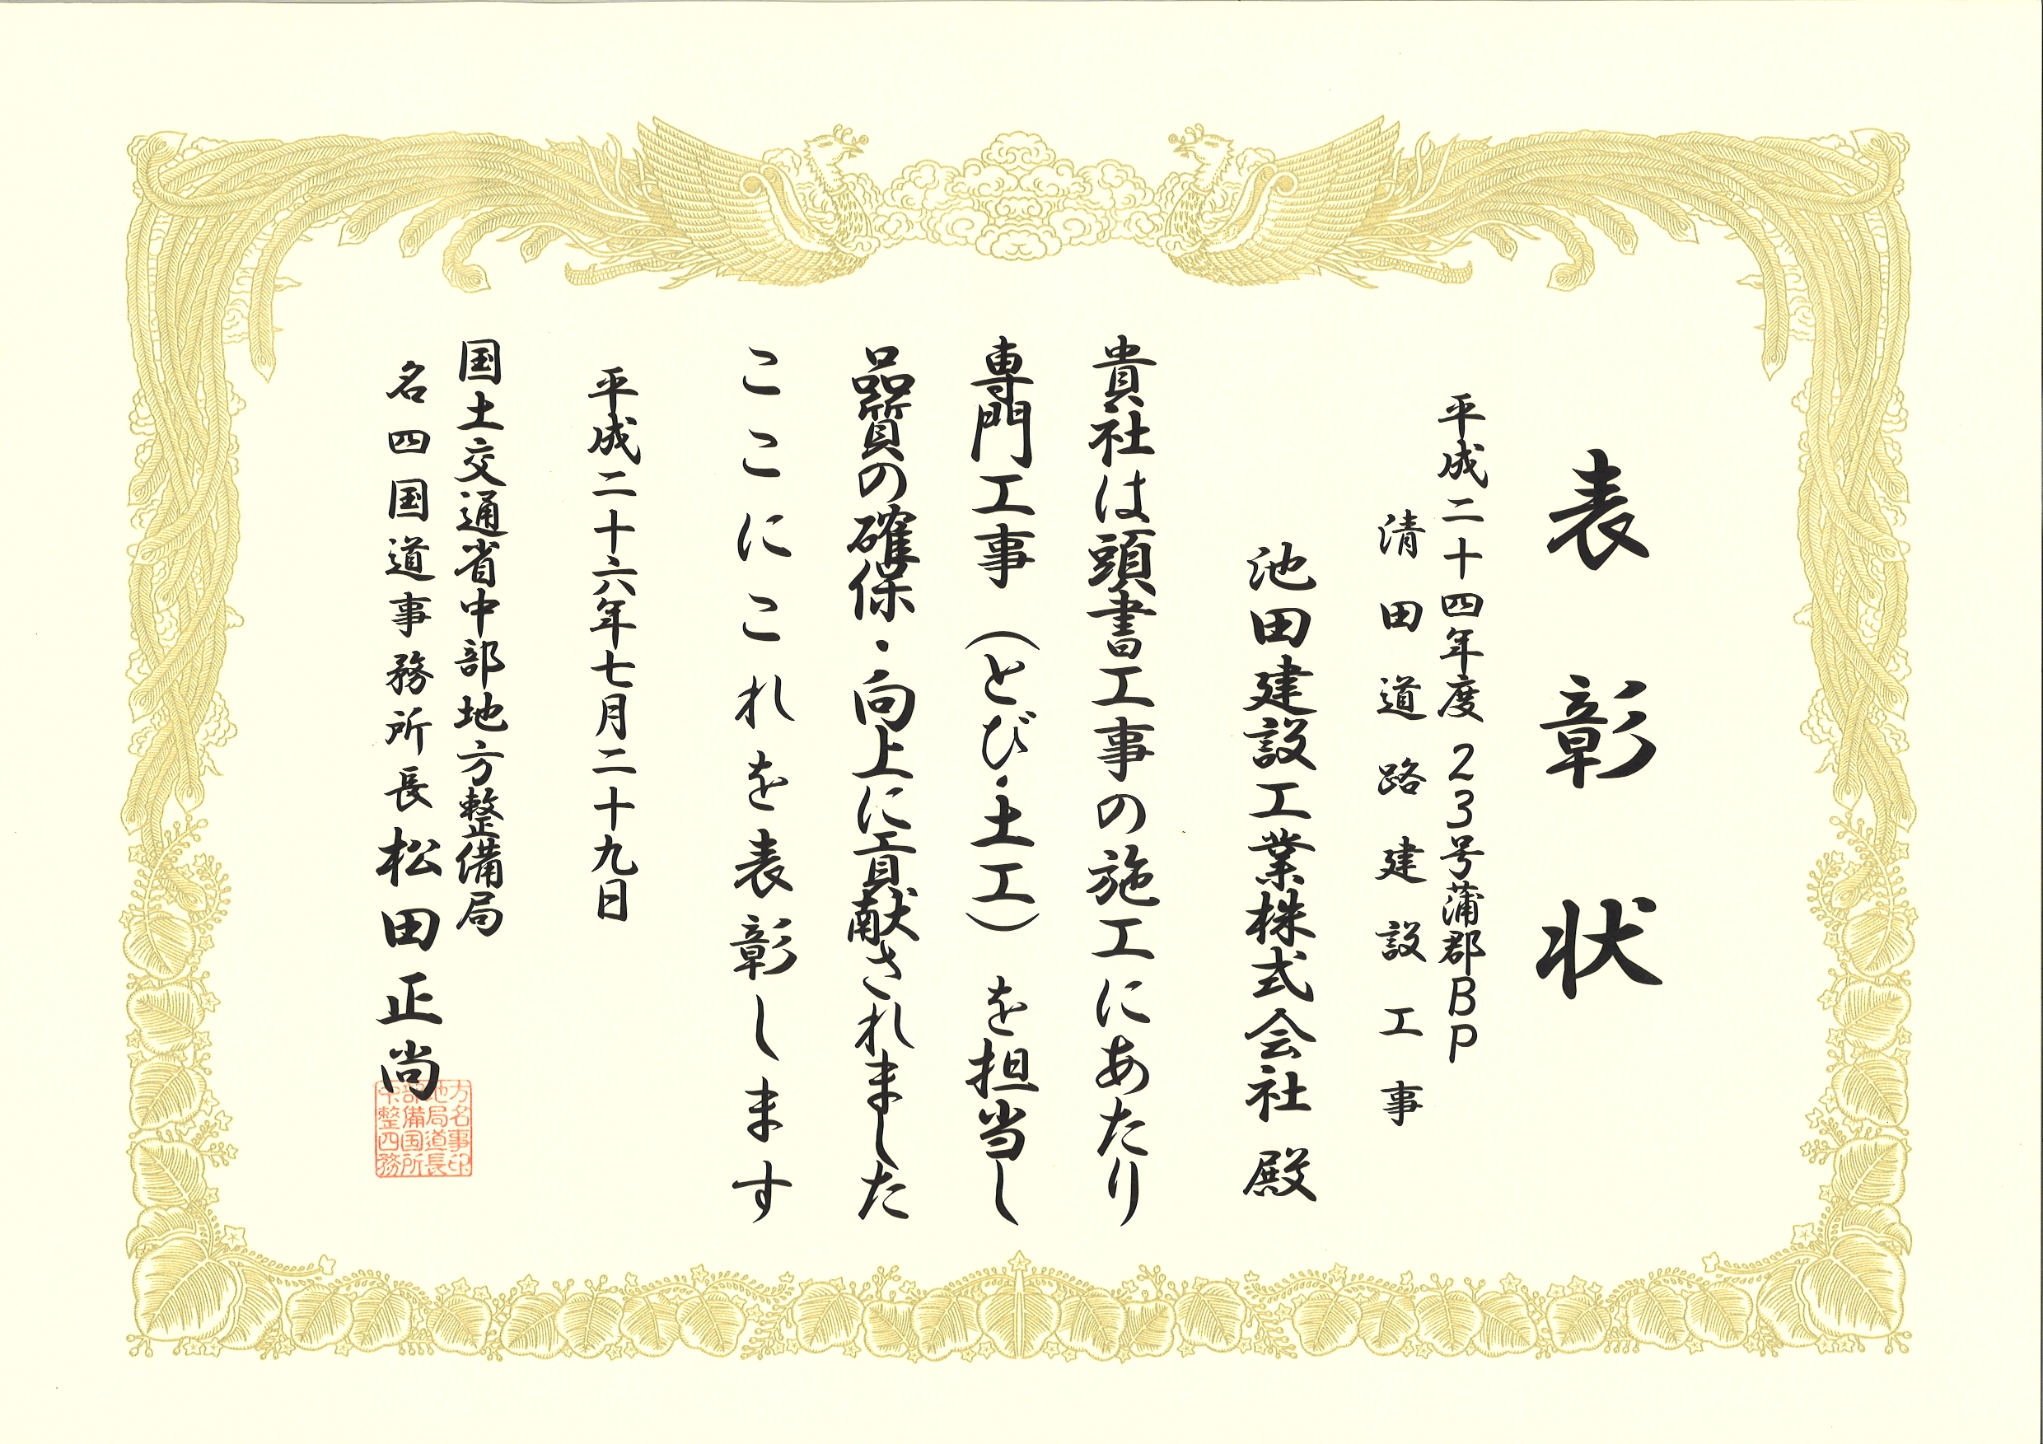 表彰状
平成二十四年度 23号蒲郡BP
清田道路建設工事
池田建設工業株式会社 殿
貴社は頭書工事の施工にあたり
専門工事（とび・土工）を担当し
品質の確保・向上に貢献されました
ここにこれを表彰します
平成二十六年七月二十九日
国土交通省中部地方整備局
名四国道事務所長 松田正尚
方名事印
地局道長
部備国所
中整四務